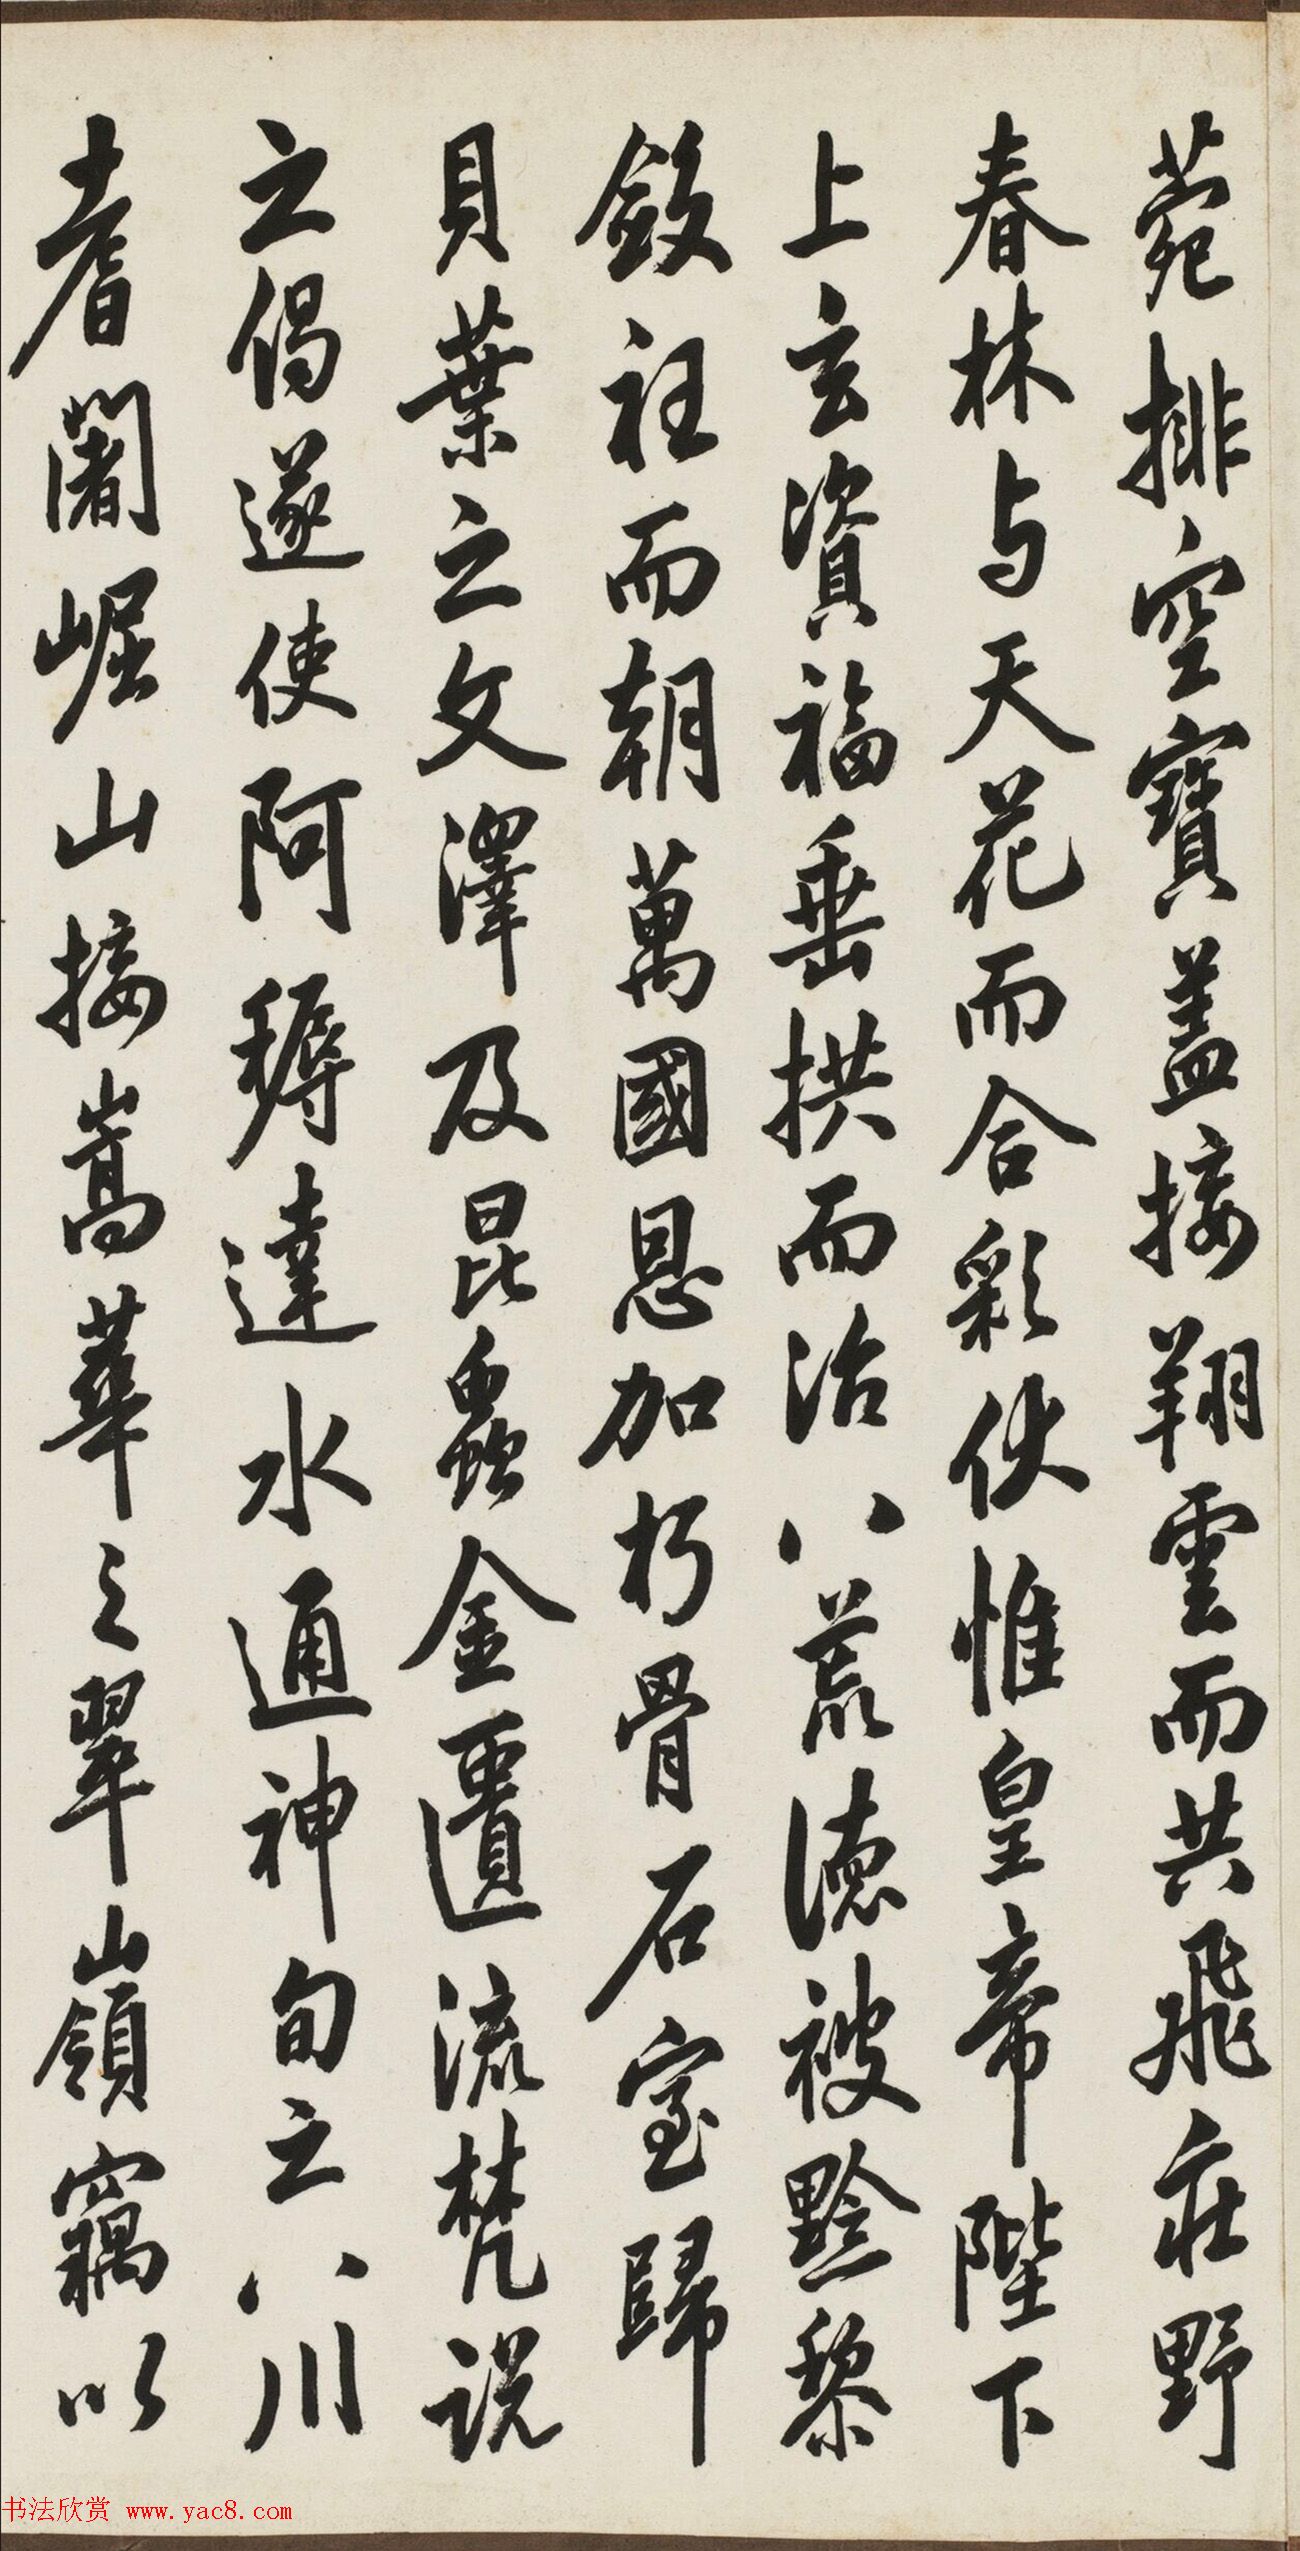 菀排空寶蓋接翔雲而共飛莊野
春林与天花而合彩伏惟皇帝陛下
上玄資福垂拱而治八荒德被黔黎
斂衽而朝萬國恩加朽骨石室歸
貝葉之文澤及昆蟲金匱流梵說
之偈遂使阿耨達水通神甸之八川
耆闍崛山接嵩華之翠嶺竊以
书法欣赏 www.yac8.com